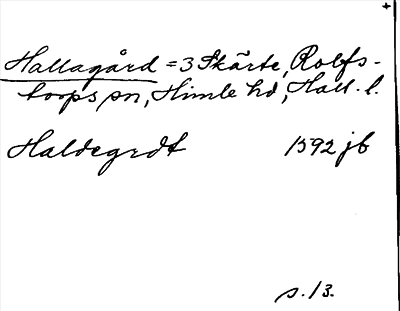 Hallagård = 3 Skärte, Rolfs-
torps sn, Himle hd, Hall. l.
Haldegrdt 1592 jb
s. 13.